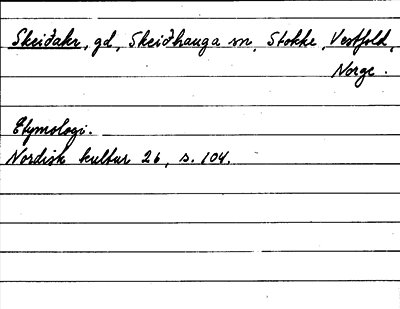 Skeiðakr, gd, Skeiðhauga sn, Stokke, Vestfold,
Norge.
Etymologi.
Nordisk kultur 26, s. 104.